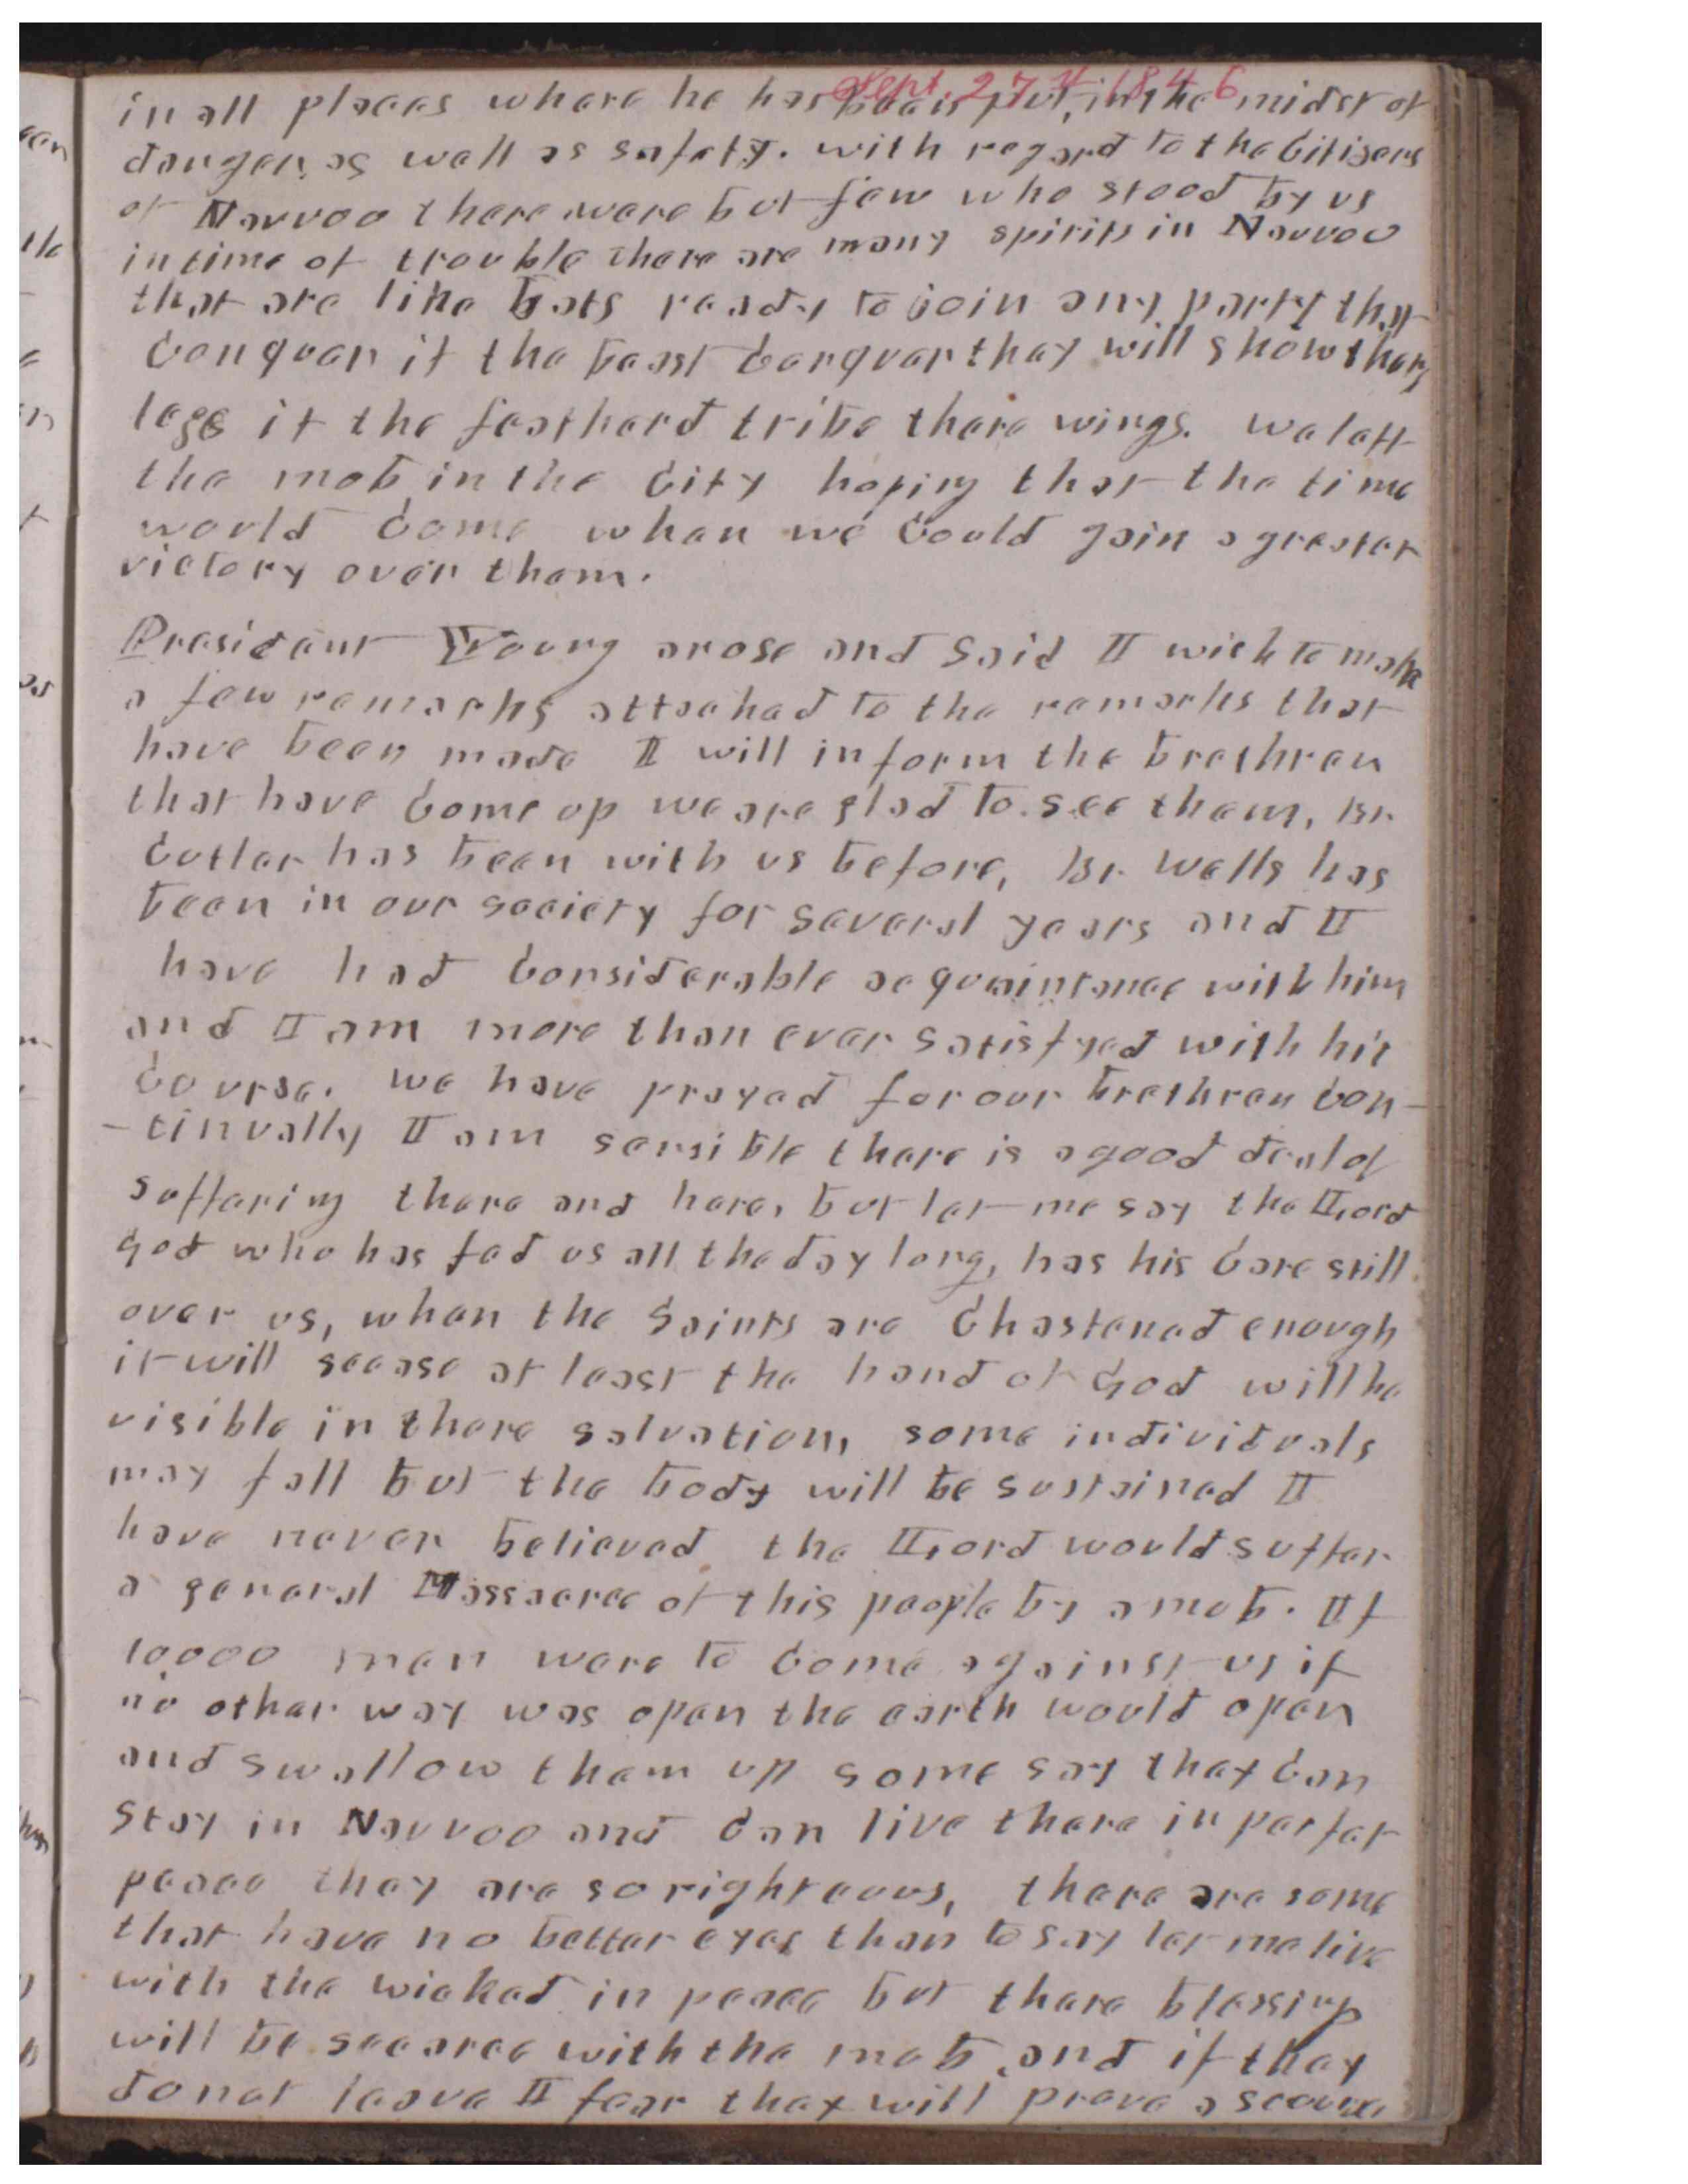 Sept. 27th 1846
in all places where he has been put, in the midst of
danger as well as safety. with regard to the Citisens
of Nauvoo there were but few who stood by us
in time of trouble there are many spirits in Nauvoo
that are like bats ready to join any party that
Conquer if the beast Conquer they will show there
legs if the feathard tribe there wings. we left
the mob in the City hoping that the time
would Come when we Could gain a greater
victory over them.
President Young arose and Said I wish to make
a few remarks attached to the remarks that
have been made I will inform the brethren
that have Come up we are glad to see them, Br.
Cutler has been with us before, Br. Wells has
been in our society for several years and I
have had Considerable acquaintance with him
and I am more than ever satisfyed with his
Course. we have prayed for our brethren Con-
-tinually I am sensible there is a good deal of
suffering there and here, but let me say the Lord
God who has fed us all the day long, has his Care still
over us, when the Saints are Chastened enough
it will scease at least the hand of God will be
visible in there salvation, some individuals
may fall but the body will be sustained I
have never believed the Lord would suffer
a general Massacree of this people by a mob. If
10,000 men were to Come against us if
no other way was open the earth would open
and swallow them up some say they Can
stay in Nauvoo and Can live there in perfet
peace they are so righteous, there are some
that have no better eyes than to say let me live
with the wicked in peace but there blessing
will be scearce with the mob, and if they
do not leave I fear they will prove a scourge